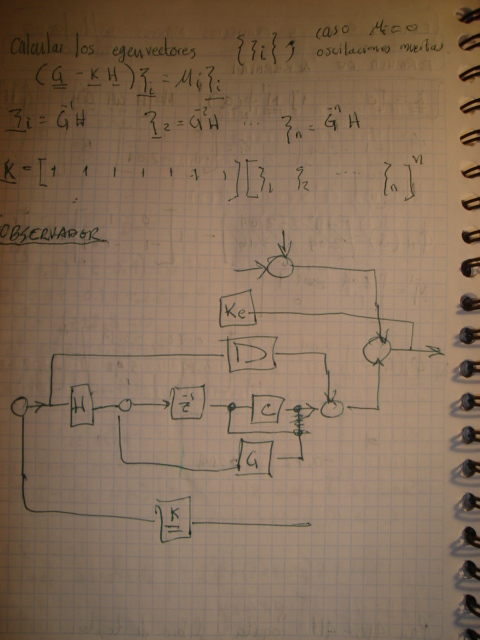 Calcular los eigenvectores {ξi}; caso μi=0
oscilaciones muertas
(G - K H) ξi = μi ξi
ξi = G⁻¹H ξ2 = G⁻²H ... ξn = G⁻ⁿ H
K = [1 1 1 1 1 1 1] [ξ1 ξ2 ... ξn]⁻¹
OBSERVADOR
Ke
D
H
z⁻¹
C
G
K